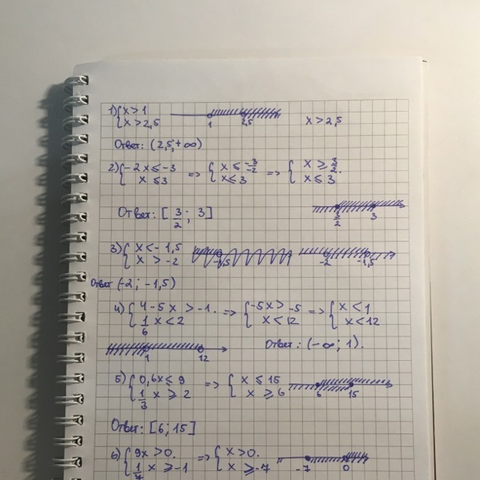 1) { x > 1
{ x > 2,5
1 2,5
x > 2,5
Ответ: (2,5; +∞)
2) { -2x ≤ -3 => { x ≤ -3/-2 => { x ≥ 3/2.
{ x ≤ 3 { x ≤ 3 { x ≤ 3.
Ответ: [3/2; 3]
3/2 3
3) { x < -1,5
{ x > -2
-1,5
-2 -1,5
Ответ (-2; -1,5)
4) { 4 - 5x > -1. => { -5x > -5 => { x < 1
{ 1/6 x < 2 { x < 12 { x < 12
1 12
Ответ: (-∞; 1).
5) { 0,6x ≤ 9 => { x ≤ 15
{ 1/3 x ≥ 2 { x ≥ 6
6 15
Ответ: [6; 15]
6) { 9x > 0. => { x > 0.
{ 1/7 x ≥ -1 { x ≥ -7
-7 0